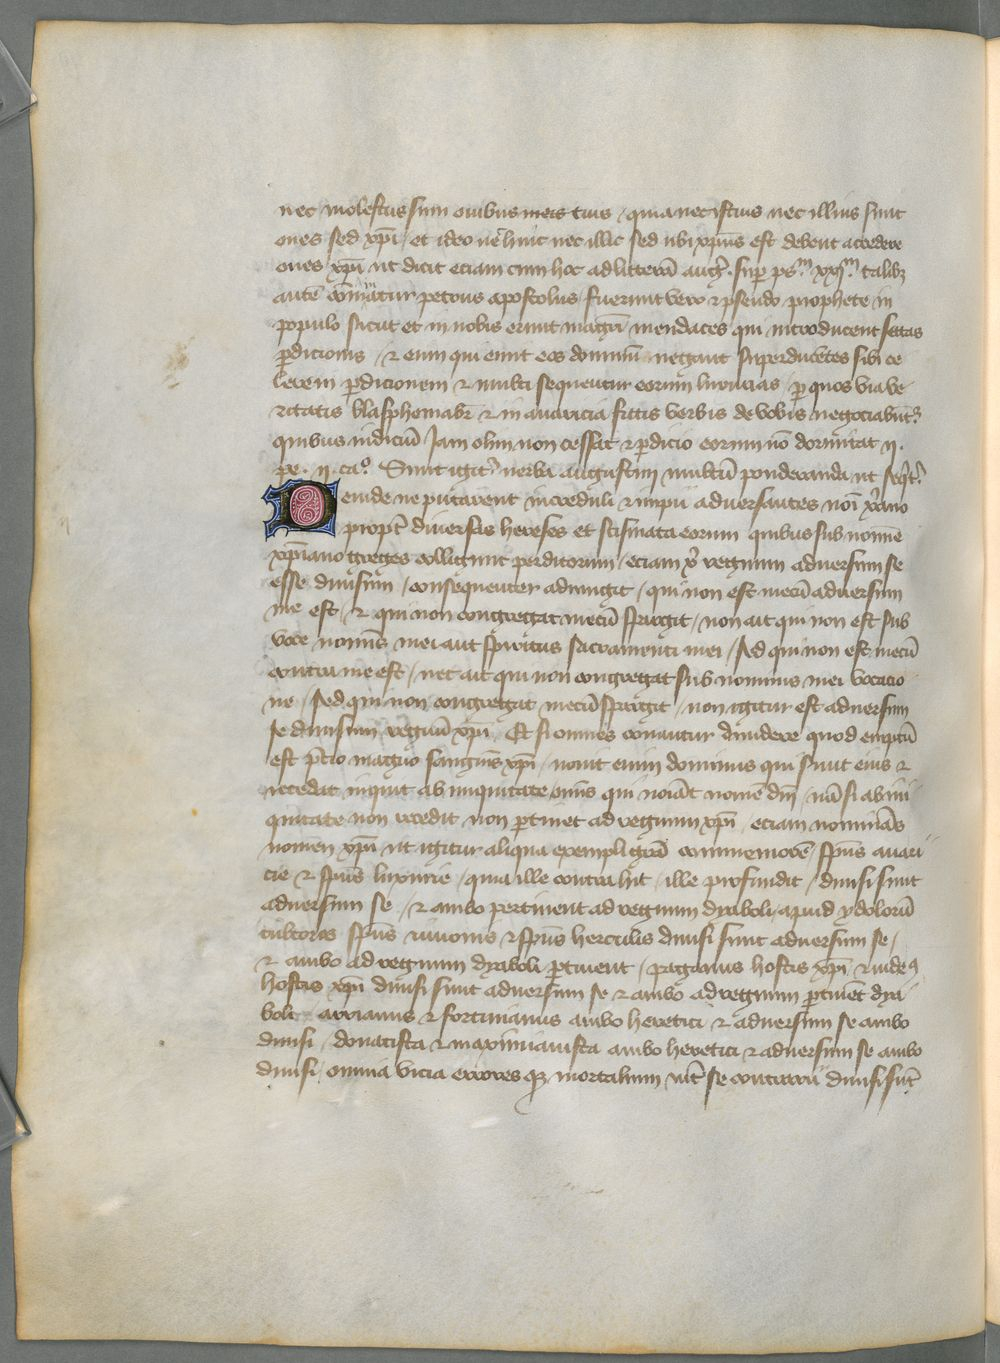 nec molestus sum ouibus meis tuis / quia nec istius nec illius sunt
oues sed xp̄i / et ideo ne huic nec illic sed ubi xp̄us est debent accedere
oues xp̄i ut dicit eciam cum hoc ad litterā aug̃. sup̱ ps.ᵐ xxj.ᵐ talibꝫ
autē cōminatur petrus apostolus / fuerunt vero ⁊ pseudo prophete in
populo sicut et in nobis erunt magr̄i mendaces qui introducent sectas
p̱dicionis / ⁊ eum qui emit eos dominū negant superducētes sibi ce
lerem p̱dicionem ⁊ multi sequentur eorum luxurias / p̱ quos via ve
ritatis blasphemabr̄ ⁊ in auaricia fictis verbis de vobis negociabūt᷑
quibus iudiciū Jam olim non cessat ⁊ p̱dicio eorum nō dormitat ij.
pe. ij. caº. Sunt igit᷑ verba augustini multū ponderanda ut seq̄t᷑
Deinde ne putarent increduli ⁊ impii aduersantes noī xp̄iano
propt̄ diuersas hereses et scismata eorum quibus sub nomine
xp̄iano greges colligunt perditorum / eciam xp̄i regnum aduersum se
esse diuisum / consequenter adiungit / qui non est mecū aduersum
me est / ⁊ qui non congregat mecū spargit / non ait qui non est sub
voce nominis mei aut spiritus sacramenti mei / Sed qui non est mecū
contra me est / nec ait qui non congregat sub nominis mei vocacio
ne / Sed qui non congregat mecū spargit / non igitur est aduersum
se diuisum regnū xp̄i Et si omnes conantur diuidere quod emptū
est p̄cio magno sanguīs xp̄i / nouit enim dominus qui sunt eius ⁊
recedat inquit ab iniquitate oms̄ qui noīat nomē dn̄i / nā si ab ini
quitate non recedit non p̱tinet ad regnum xp̄i / eciam nominās
nomen xp̄i ut igitur aliqua exempli gr̄a commemorē / spūs auari
cie ⁊ spūs luxurie / quia ille contrahit / ille profundit / diuisi sunt
aduersum se / ⁊ ambo pertinent ad regnum dyaboli / apud ydolorū
cultores spūs iunonis ⁊ spūs herculis diuisi sunt aduersum se /
⁊ ambo ad regnum dyaboli p̱tinent / paganus hostis xp̄i ⁊ iudeꝰ
hostis xp̄i diuisi sunt aduersum se ⁊ ambo ad regnum p̱tinēt dya
boli arrianus ⁊ fortinianus ambo heretici ⁊ aduersum se ambo
diuisi / donatista ⁊ maximianista ambo heretici ⁊ aduersum se ambo
diuisi / omnia vicia errores qꝫ mortalium int̄ se contraria diuisi sūt